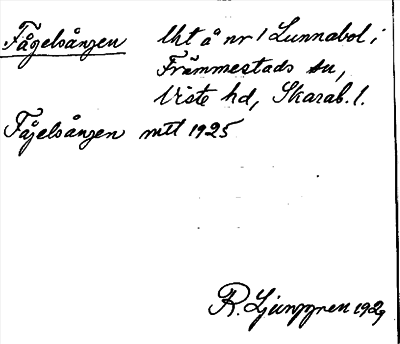 Fågelsången Uht å nr 1 Lunnabol i
Främmestads sn,
Viste hd, Skarab. l.
Fåjelsången mtl 1925
R. Ljunggren 1929